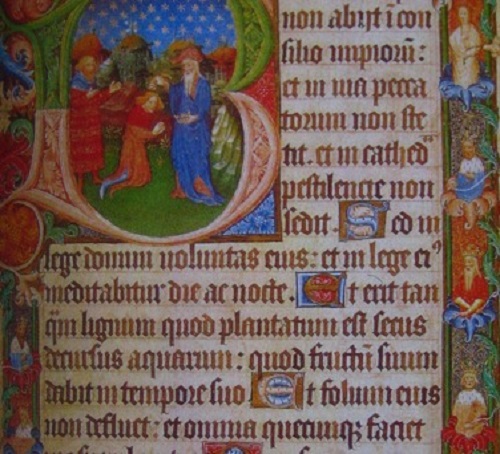 non abijt ī con
silio impiorū:
et in uia pecca
torum non ste
tit. et in cathed̄
pestilencie non
sedit. Sed in
lege domini uoluntas eius: et in lege ei⁹
meditabitur die ac nocte. Et erit tan
q̄m lignum quod plantatum est secus
decursus aquarum: quod fructū suum
dabit in tempore suo Et folium eius
non defluet: et omnia quecūqꝫ faciet